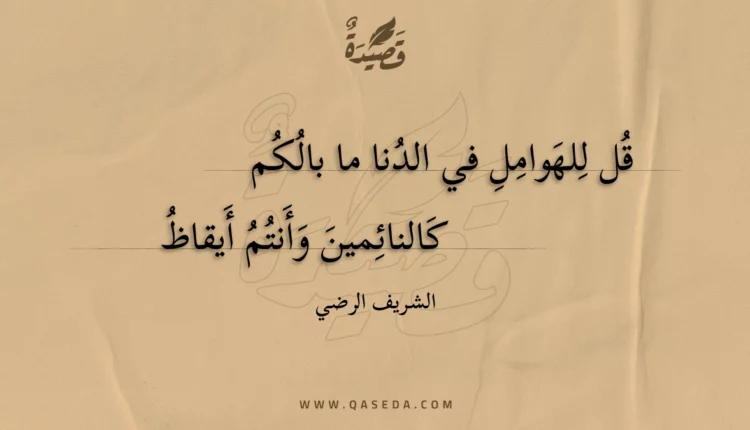 قَصِيدَةٌ
قُل لِلهَوامِلِ في الدُنا ما بالُكُم
كَالنائِمينَ وَأَنتُمُ أَيقاظُ
الشريف الرضي
WWW.QASEDA.COM